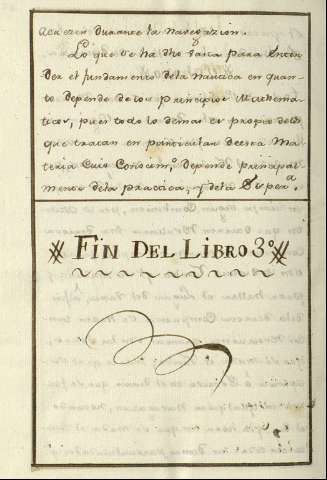 acaecen durante la navegazion.
Lo que se ha dho basta para enten
der el fundamento dela Nautica en quan-
to depende de los principios Mathema-
ticos, pues todo lo demas es propio delos
que tratan en particular de esta Ma-
teria Cuio Conocim.º depende principal
mente dela practica, y dela Esper.ª
Fin Del Libro 3º